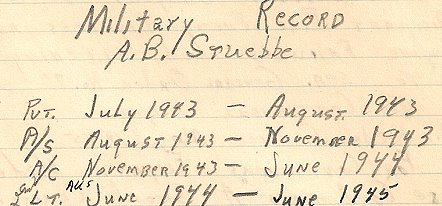 Military Record
A.B. Stuebbe.
Pvt. July 1943 - August 1943
A/S August 1943 - November 1943
A/C November 1943 - June 1944
2nd Lt. AUS June 1944 - June 1945